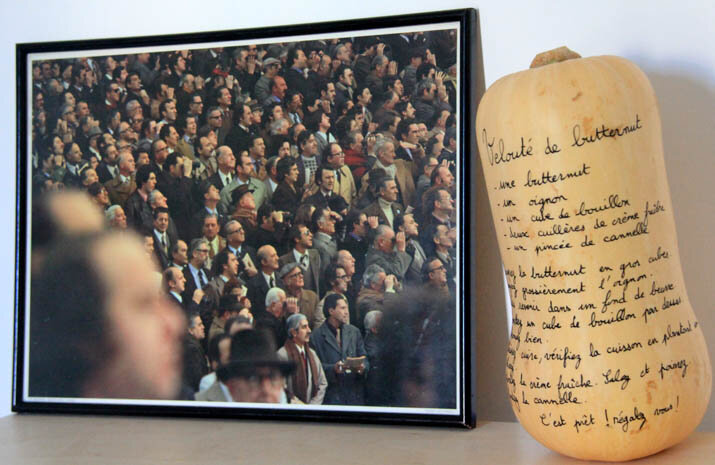 Velouté de butternut
- une butternut
- un oignon
- un cube de bouillon
- deux cuillères de crème fraîche
- un pincée de cannelle
le butternut en gros cubes
grossièrement l'oignon.
revenir dans un fond de beurre
un cube de bouillon par dessus
bien.
cuire, vérifiez la cuisson en plantant
crème fraîche. Salez et poivrez
la cannelle.
C'est prêt ! régalez vous !